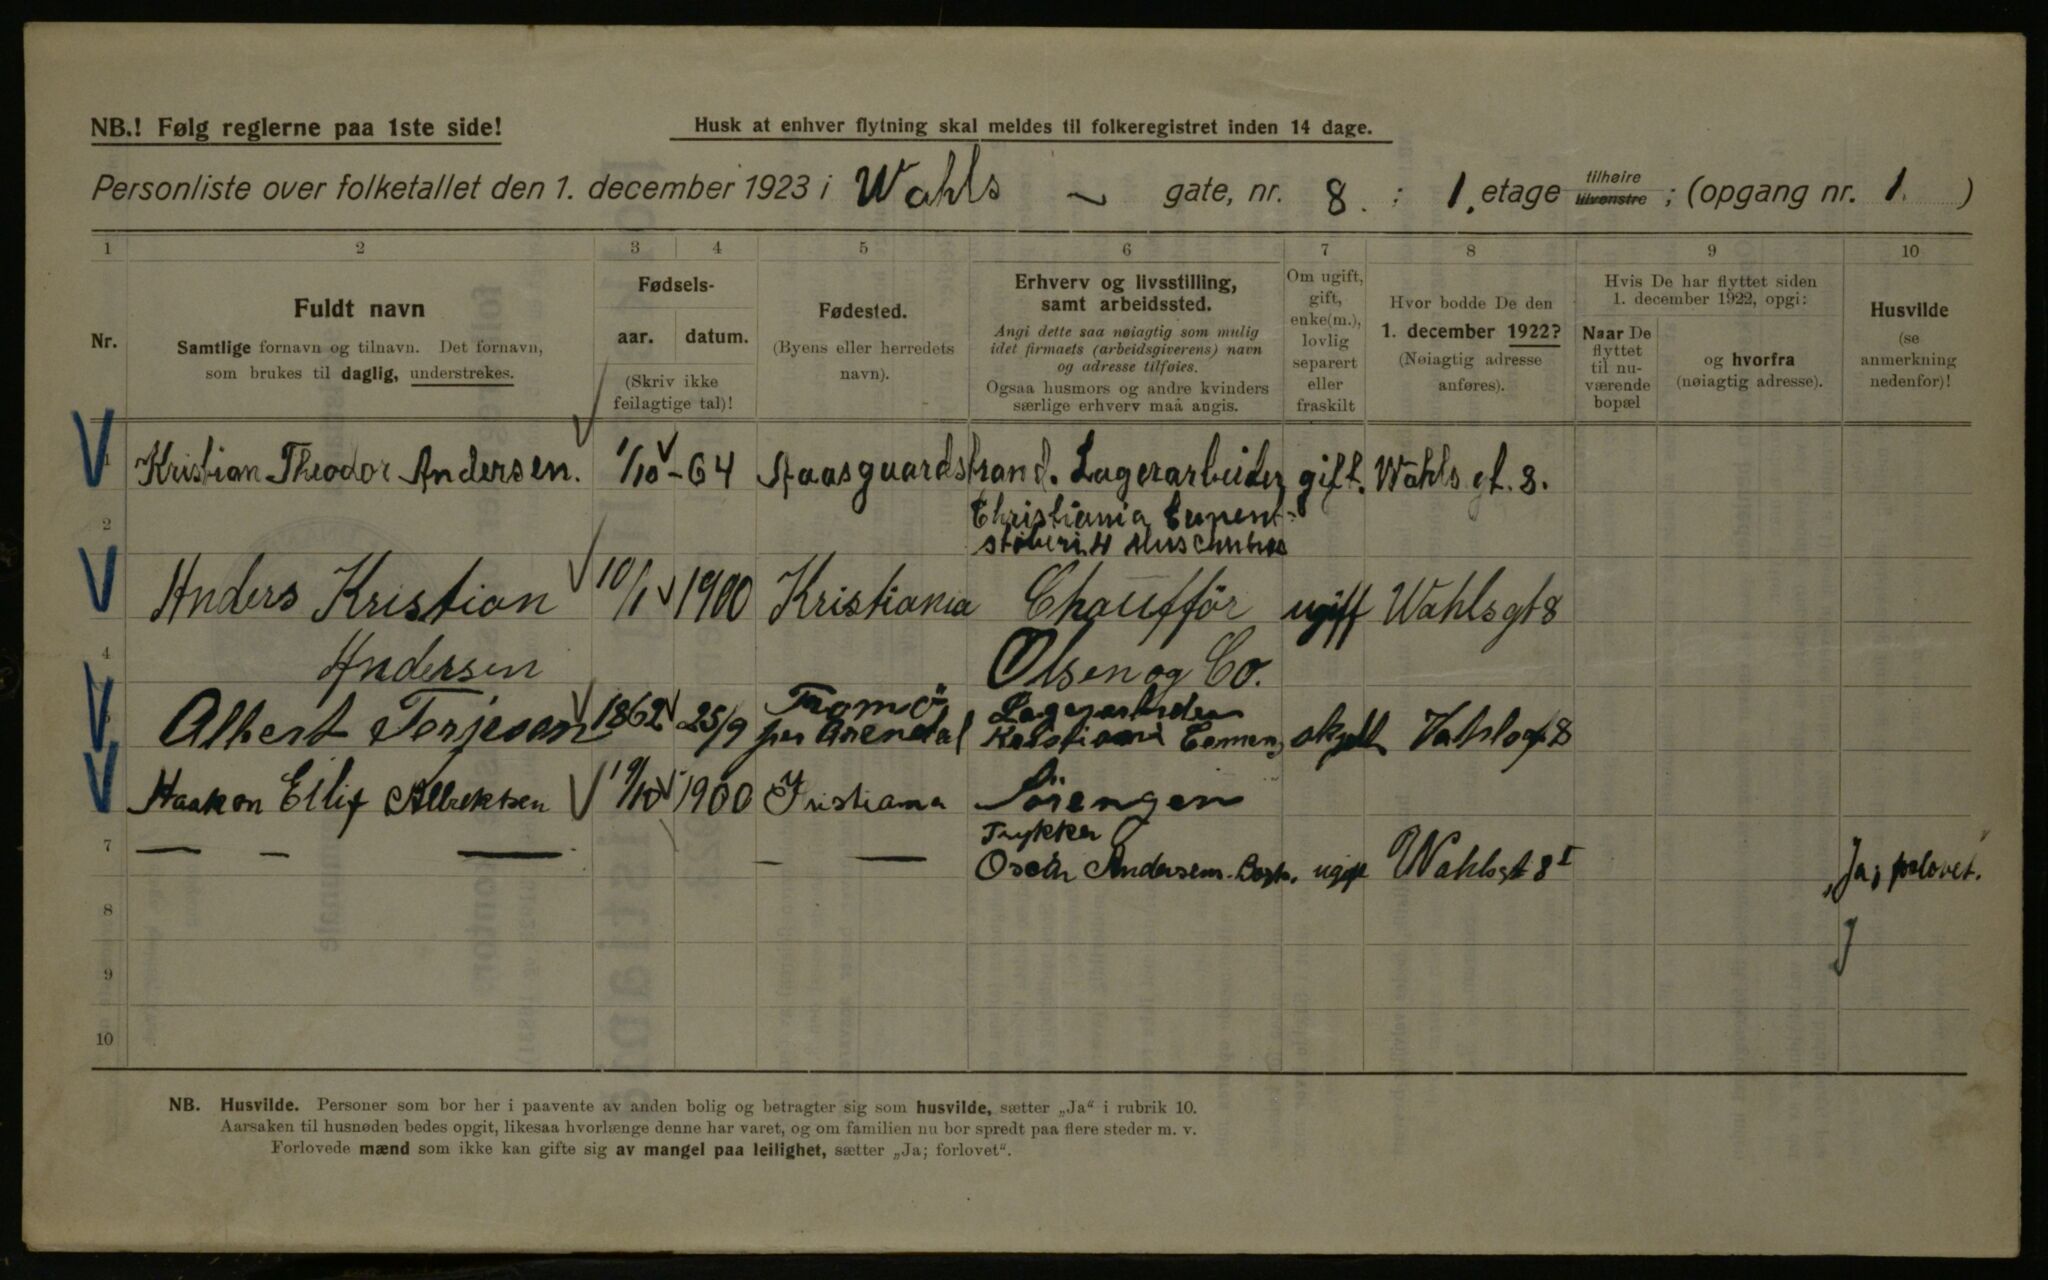 NB.! Følg reglerne paa 1ste side!
Husk at enhver flytning skal meldes til folkeregistret inden 14 dage.
Personliste over folketallet den 1. december 1923 i Wahls ~ gate, nr. 8. ; 1. etage tilhøire tilvenstre ; (opgang nr. 1. )
1 2 3 4 5 6 7 8 9 10
Nr.
Fuldt navn
Samtlige fornavn og tilnavn. Det fornavn,
som brukes til daglig, understrekes.
Fødsels-
aar. datum.
(Skriv ikke
feilagtige tal)!
Fødested.
(Byens eller herredets
navn).
Erhverv og livsstilling,
samt arbeidssted.
Angi dette saa nøiagtig som mulig
idet firmaets (arbeidsgiverens) navn
og adresse tilføies.
Ogsaa husmors og andre kvinders
særlige erhverv maa angis.
Om ugift,
gift,
enke(m.),
lovlig
separert
eller
fraskilt
Hvor bodde De den
1. december 1922?
(Nøiagtig adresse
anføres).
Hvis De har flyttet siden
1. december 1922, opgi:
Naar De
flyttet
til nu-
værende
bopæl
og hvorfra
(nøiagtig adresse).
Husvilde
(se
anmerkning
nedenfor)!
1 Kristian Theodor Andersen. 1/10 - 64 Aasguardstrand. Lagerarbeider gift. Wahls gt. 8.
2 Christiania Cement-
støberi
Anders Kristian 10/1 1900 Kristiania Chaufför ugift Wahlsgt 8
4 Andersen Olsen og Co.
Albert Terjesen 1862 25/9 Tromö Lagerarbeider
per Arendal Kristiania Cemen, Vahlsgt 8
Haakon Eilif Albrektsen 19/10 1900 Kristiania Sörengen
7 — - — - — Trykker
Oscar Andersens Bogtr. ugift Wahlsgt 8 I „Ja; forlovet.
8
9
10
NB. Husvilde. Personer som bor her i paavente av anden bolig og betragter sig som husvilde, sætter „Ja“ i rubrik 10.
Aarsaken til husnøden bedes opgit, likesaa hvorlænge denne har varet, og om familien nu bor spredt paa flere steder m. v.
Forlovede mænd som ikke kan gifte sig av mangel paa leilighet, sætter „Ja; forlovet“.